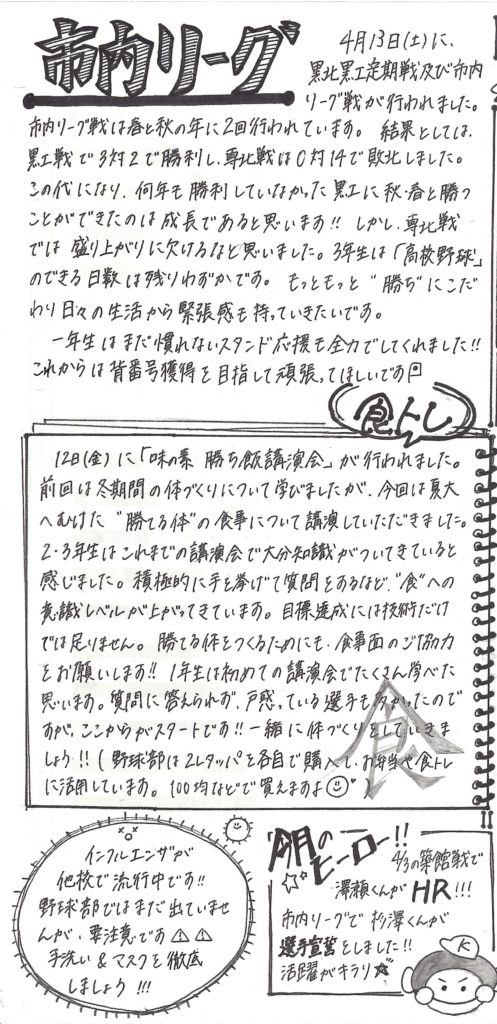 市内リーグ
4月13日(土)に、
黒北黒工定期戦及び市内
リーグ戦が行われました。
市内リーグ戦は春と秋の年に2回行われています。結果としては、
黒工戦で3対2で勝利し、専北戦は0対14で敗北しました。
この代になり、何年も勝利していなかった黒工に秋・春と勝つ
ことができたのは成長であると思います!! しかし、専北戦
では盛り上がりに欠けるなと思いました。3年生は「高校野球」
のできる日数は残りわずかです。もっともっと"勝ち"にこだ
わり日々の生活から緊張感も持っていきたいです。
一年生はまだ慣れないスタンド応援も全力でしてくれました!!
これからは背番号獲得を目指して頑張ってほしいです
食トレ
12日(金)に「味の素 勝ち飯講演会」が行われました。
前回は冬期間の体づくりについて学びましたが、今回は夏大
へむけた"勝てる体"の食事について講演していただきました。
2・3年生はこれまでの講演会で大分知識がついてきていると
感じました。積極的に手を挙げて質問をするなど、"食"への
意識レベルが上がってきています。目標達成には技術だけ
では足りません。勝てる体をつくるためにも、食事面のご協力
をお願いします!! 1年生は初めての講演会でたくさん学べた
思います。質問に答えられず、戸惑っている選手も多かったので
すが、ここからがスタートです!! 一緒に体づくりをしていきま
しょう!! (野球部は2Lタッパを各自で購入し、お弁当や食トレ
に活用しています。100均などで買えますよ)
食
インフルエンザが
他校で流行中です!!
野球部ではまだ出ていませ
んが、要注意です
手洗い&マスクを徹底
しましょう!!!
今月の
ヒーロー!!
4/3の築館戦で
澤瀬くんがHR!!!
市内リーグで杉澤くんが
選手宣誓をしました!!
活躍がキラリ
K